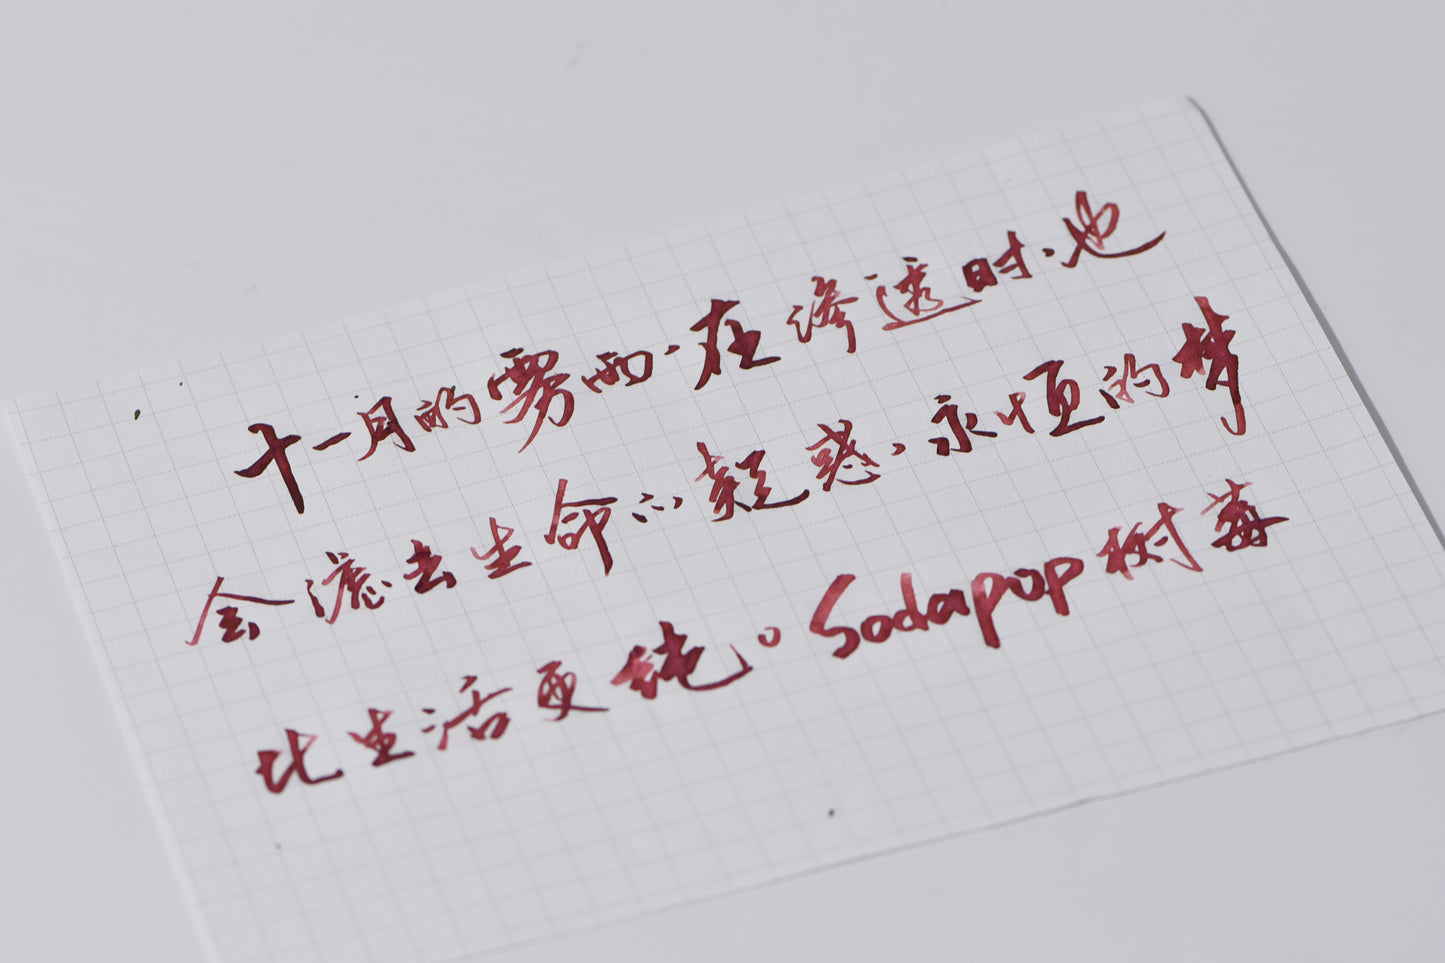 十一月的雾雨、在渗透时、也
会滤去生命的疑惑、永恒的梦
比生活更纯。Sodapop树莓